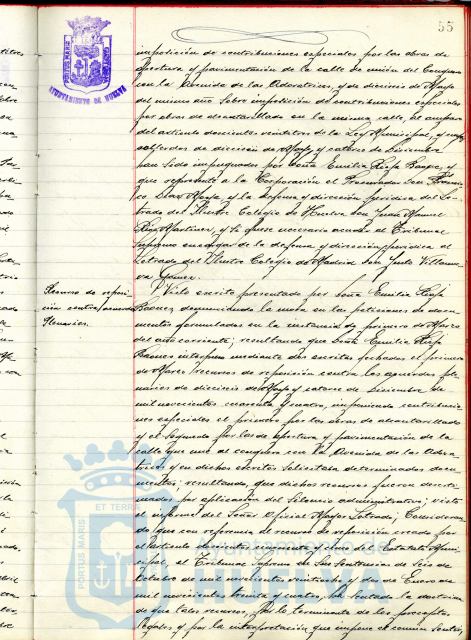 55
PORTUS MARIS
AYUNTAMIENTO DE HUELVA
imposición de contribuciones especiales por las obras de
apertura y pavimentación de la calle de unión del Conquero
con la Avenida de las Adoratrices, y de diecisiete de Mayo
del mismo año sobre imposición de contribuciones especiales
por obras de alcantarillado en la misma calle, al amparo
del artículo doscientos veintitres de la Ley Municipal, y
acuerdos de dieciseis de Mayo y catorce de Diciembre
han sido impugnados por Doña Emilia Baenez, y
que represente a la Corporación el Procurador Don
Díaz y la defensa y dirección jurídica del Le-
trado del Ilustre Colegio de Huelva Don Juan Manuel
Martínez, y si fuese necesario acudir al Tribunal
Supremo encargar de la defensa y dirección jurídica al
Letrado del Ilustre Colegio de Madrid Don Justo Villanue-
va Gómez.
Recurso de reposi-
ción contra acuerdos
Plenarios.
Visto escrito presentado por Doña Emilia
Baenez, denunciando la mora en las peticiones de docu-
mentos formuladas en la instancia de primero de Marzo
del año corriente; resultando que Doña Emilia
Baenez interpuso mediante dos escritos fechados el primero
de Marzo recursos de reposición contra los acuerdos ple-
narios de dieciseis de Mayo y catorce de Diciembre de
mil novecientos cuarenta y cuatro, imponiendo contribucio-
nes especiales el primero por las obras de alcantarillado
y el segundo por las de apertura y pavimentación de la
calle que une al conquero con la Avenida de las Adora-
trices, y en dichos escritos solicitaba determinados docu-
mentos; resultando, que dichos recursos fueron desesti-
mados por aplicación del silencio administrativo; visto
el informe del Señor Oficial Mayor Letrado; Consideran-
do, que con referencia al recurso de reposición creado por
el artículo del Estatuto Muni-
cipal, el Tribunal Supremo en sus Sentencias de seis de
Octubre de mil novecientos veintiocho y dos de Enero de
mil novecientos treinta y cuatro, ha sentado la doctrina
de que tales recursos, por lo terminante de los preceptos
legales y por la interpretación que impone el común sentir
PORTUS MARIS
ET TERRAE
Ayuntamiento de
HUELVA